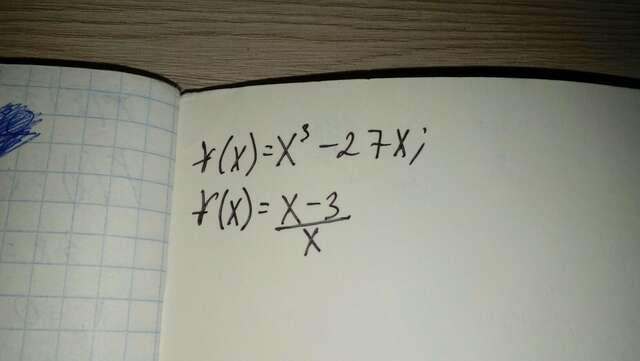 f(x)=x³-27x;
f(x)=x-3/x